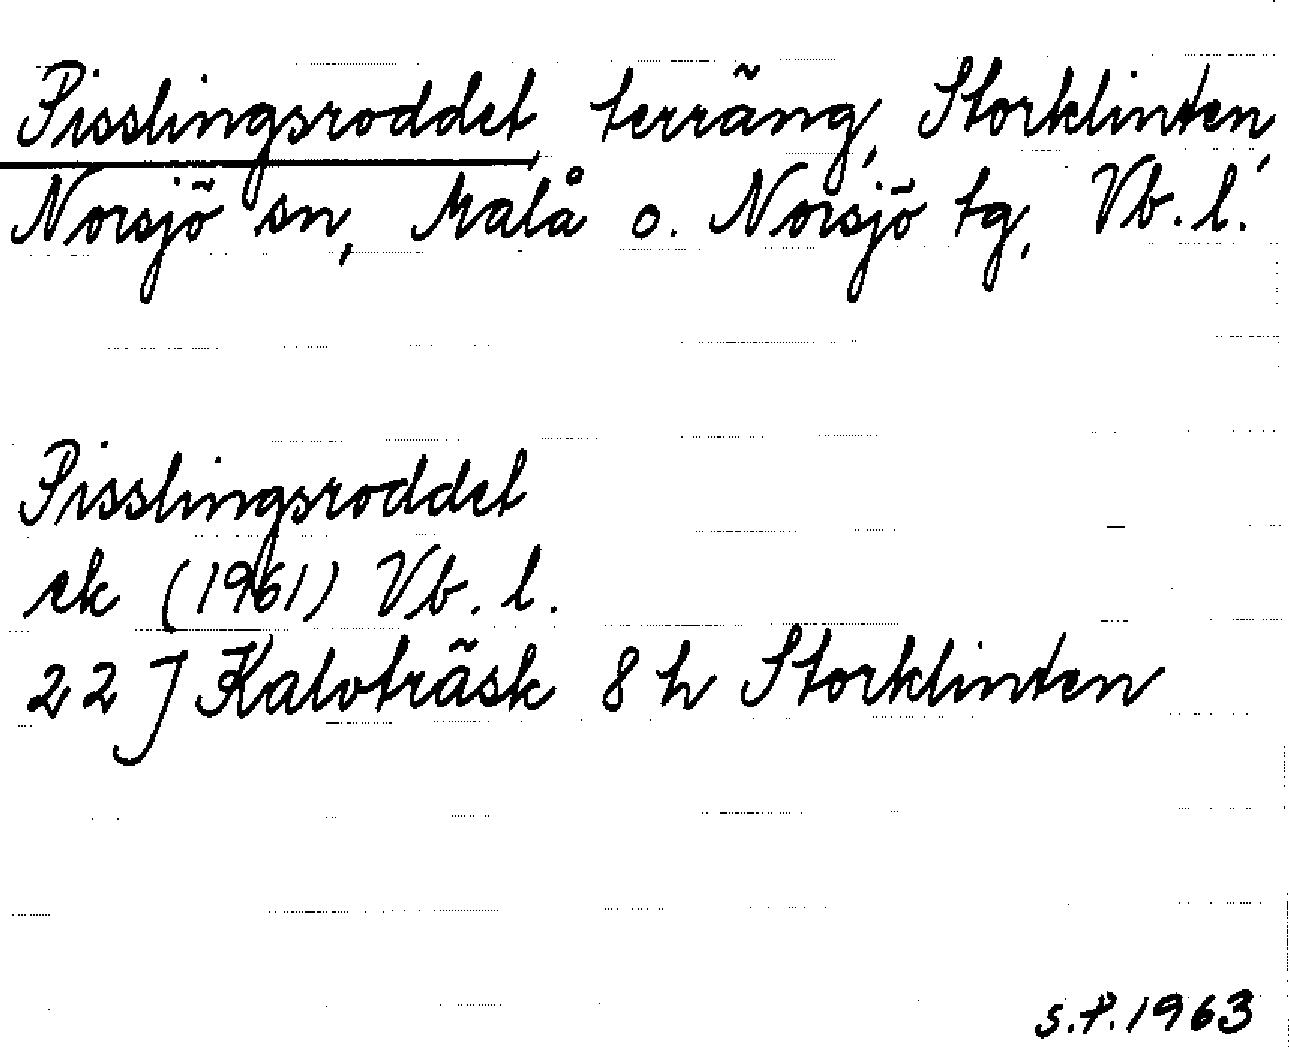 Pisslingsroddet, terräng, Storklinten,
Norsjö sn, Malå o. Norsjö tg, Vb. l.
Pisslingsroddet
ek (1961) Vb. l.
22 J Kalvträsk 8 h Storklinten
S.P. 1963